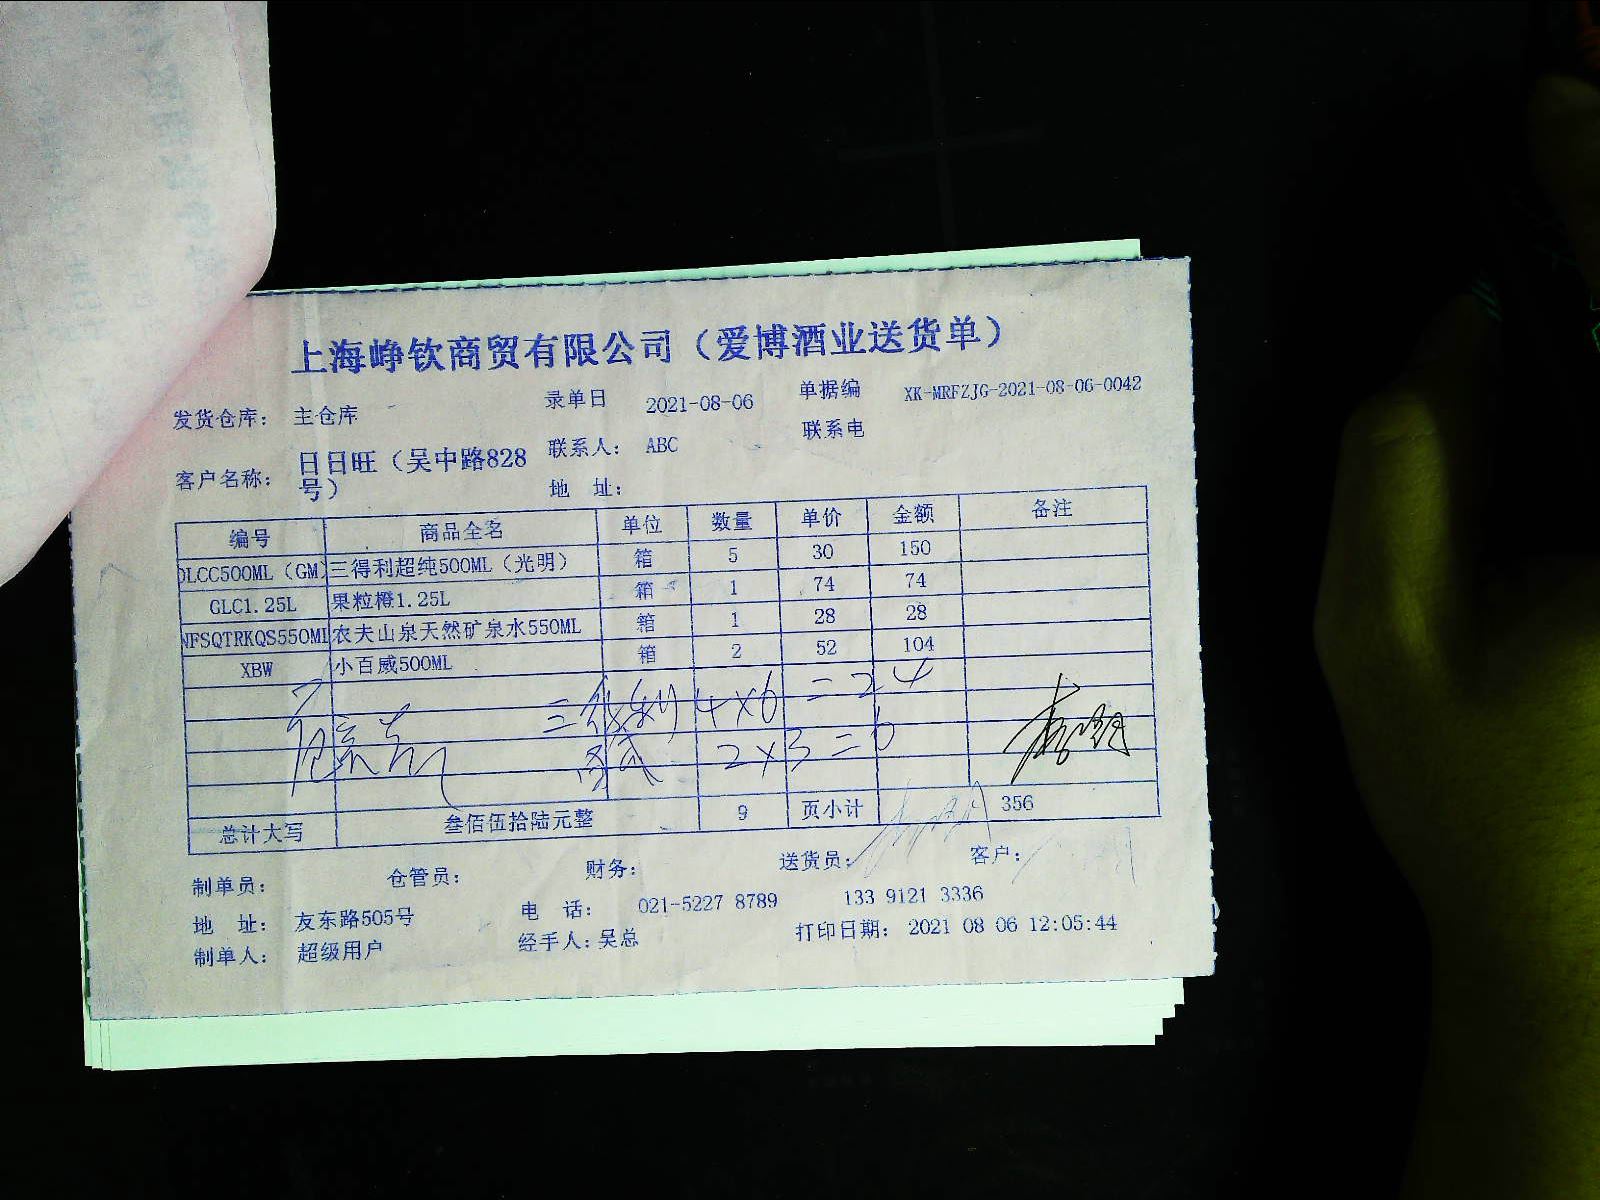 上海峥钦商贸有限公司（爱博酒业送货单）
发货仓库： 主仓库 录单日 2021-08-06 单据编 XK-MRFZJG-2021-08-06-0042
客户名称： 日日旺（吴中路828号） 联系人： ABC 联系电
地 址：
编号 商品全名 单位 数量 单价 金额 备注
DLCC500ML（GM） 三得利超纯500ML（光明） 箱 5 30 150
GLC1.25L 果粒橙1.25L 箱 1 74 74
NFSQTRKQS550ML 农夫山泉天然矿泉水550ML 箱 1 28 28
XBW 小百威500ML 箱 2 52 104
三得利 4×6 =24
2×3=6
总计大写 叁佰伍拾陆元整 9 页小计 356
制单员： 仓管员： 财务： 送货员： 客户：
地 址： 友东路505号 电 话： 021-5227 8789 133 9121 3336
制单人： 超级用户 经手人：吴总 打印日期： 2021 08 06 12:05:44